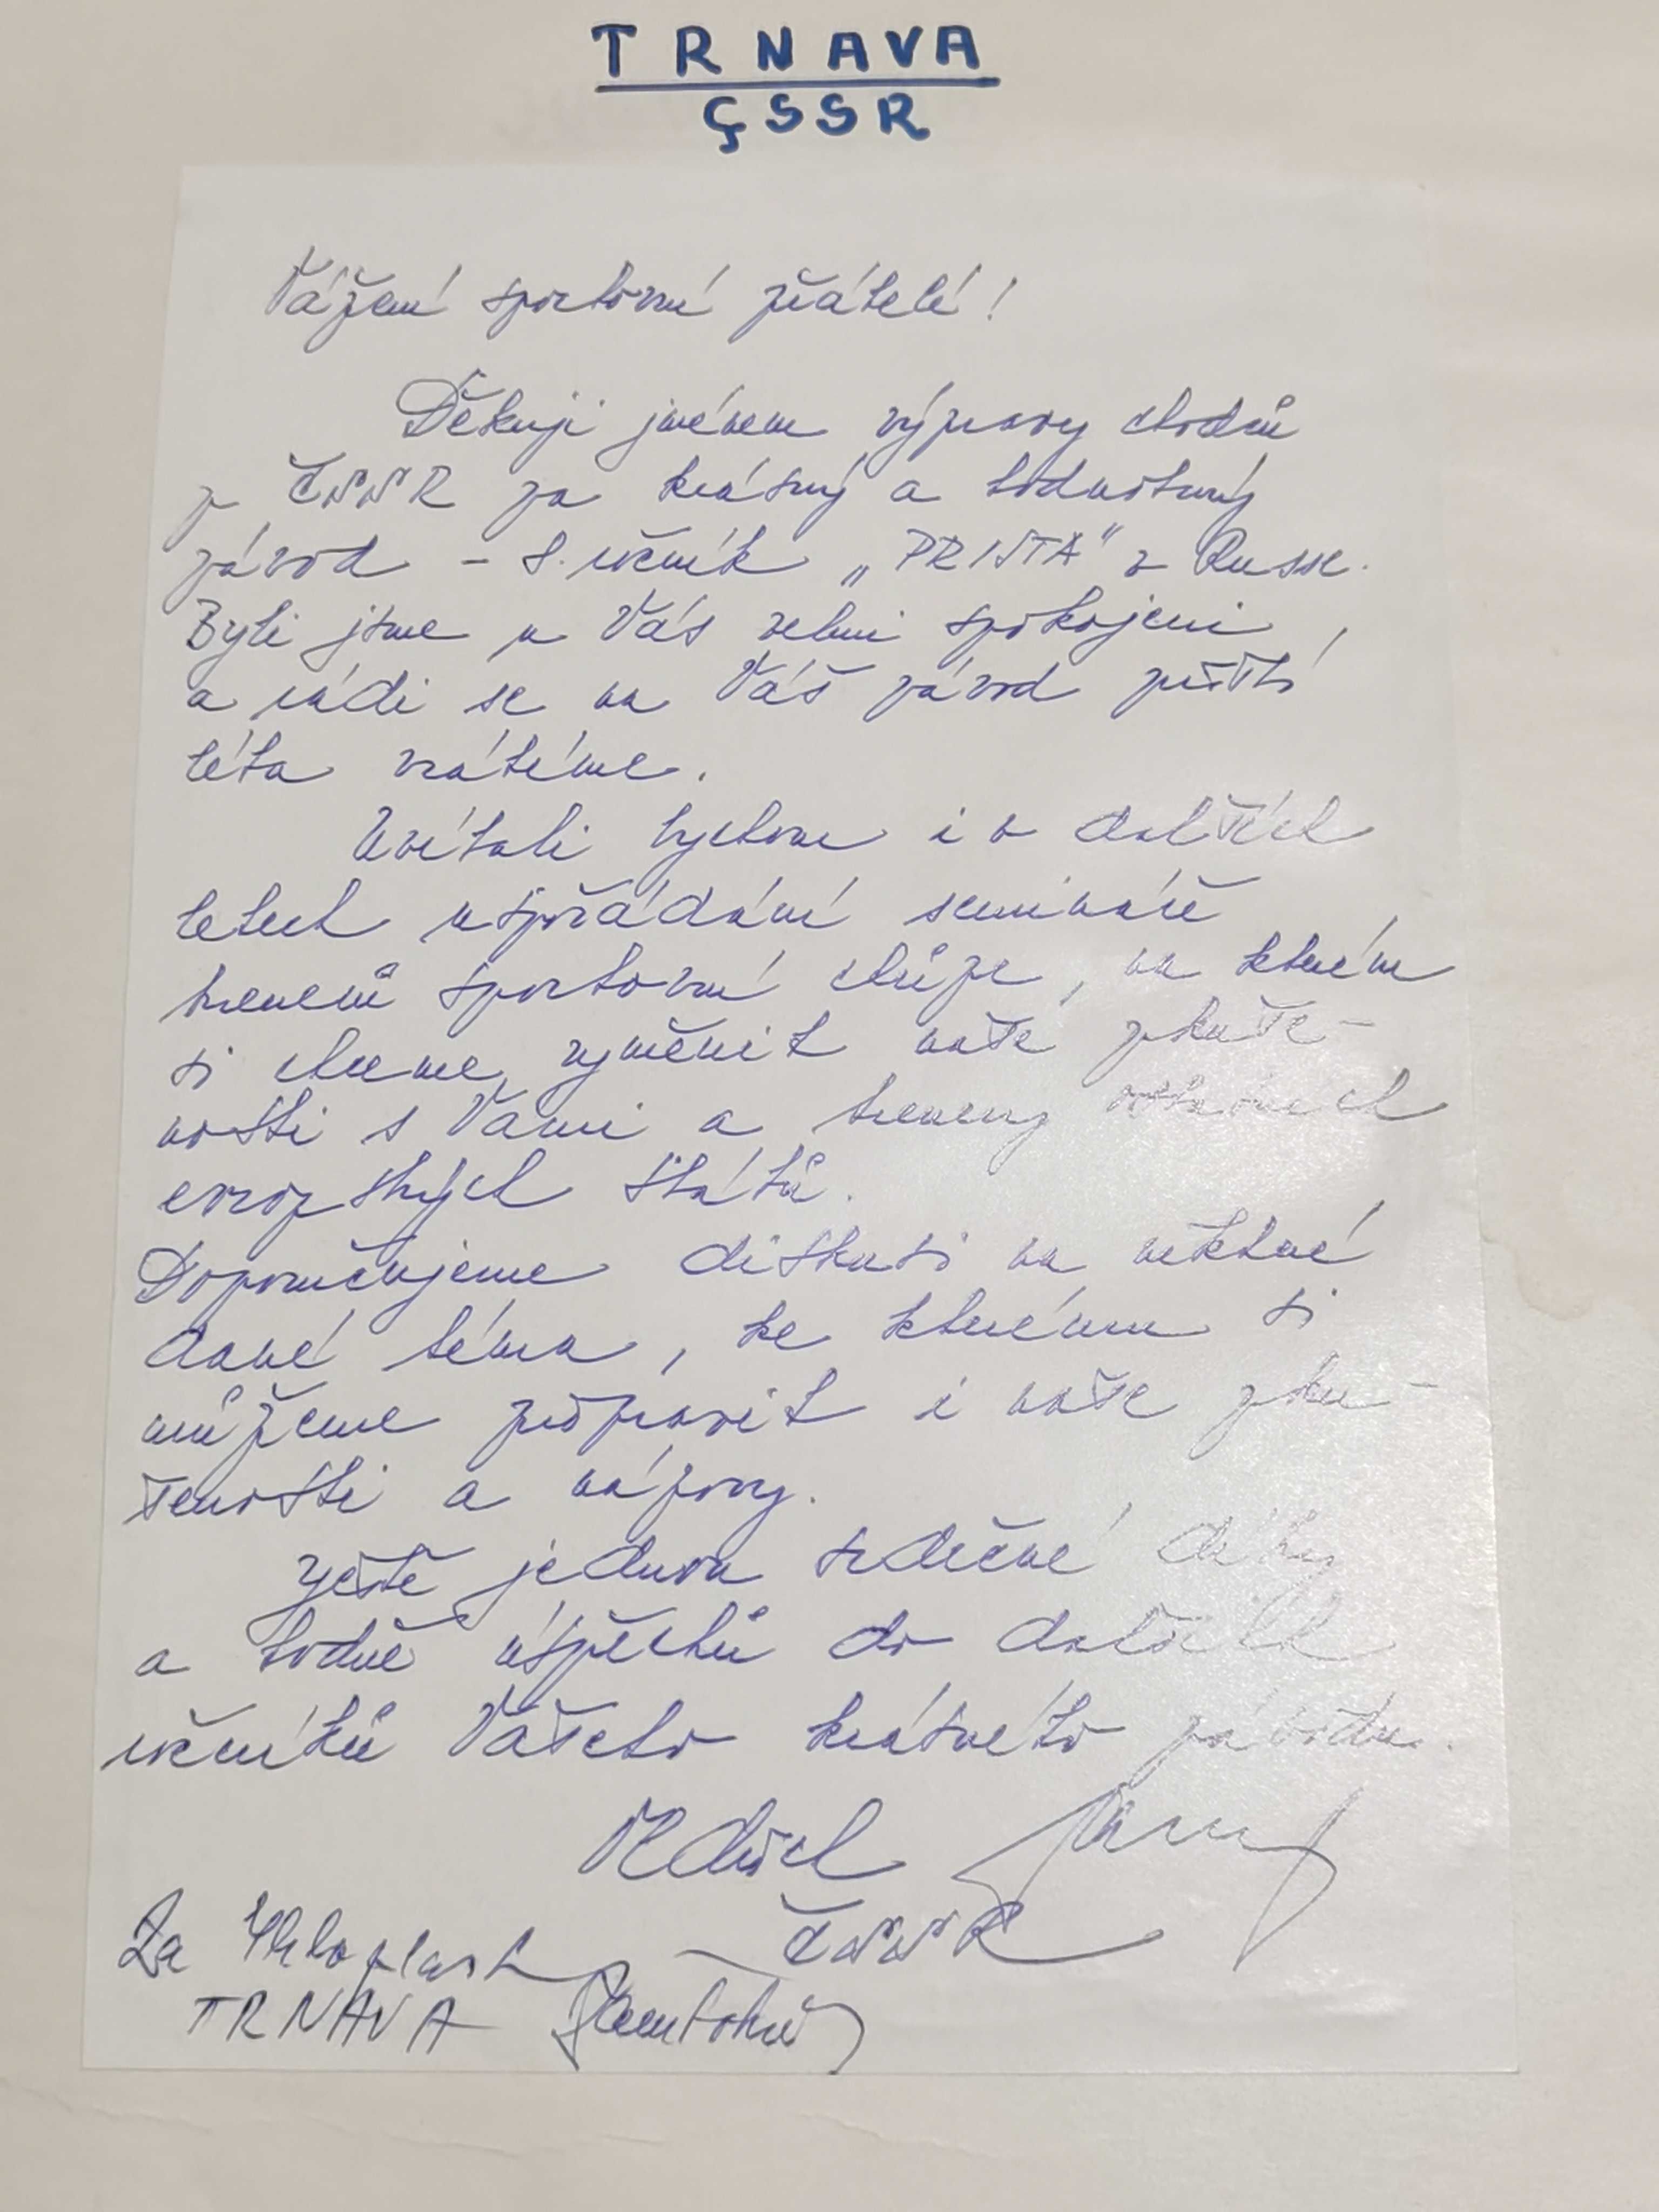 TRNAVA
ÇSSR
Vážení sportovní přátelé!
Děkuji jménem výpravy chodců
z ČSSR za krásný a hodnotný
závod - 8. ročník „PRISTA" v Russe.
Byli jsme u Vás velmi spokojeni,
a rádi se na Váš závod příští
léta vrátíme.
Uvítali bychom i v dalších
letech uspořádání semináře
trenérů sportovní chůze, na kterém
si chceme vyměnit naše zkuše-
nosti s Vámi a trenery ostatních
evropských států.
Doporučujeme diskusi na některé
dané téma, ke kterému si
můžeme připravit i naše zku-
šenosti a názory.
Ještě jednou srdečné díky
a hodně úspěchů do dalších
ročníků Vašeho krásného závodu.
ČSSR
Za
TRNAVA